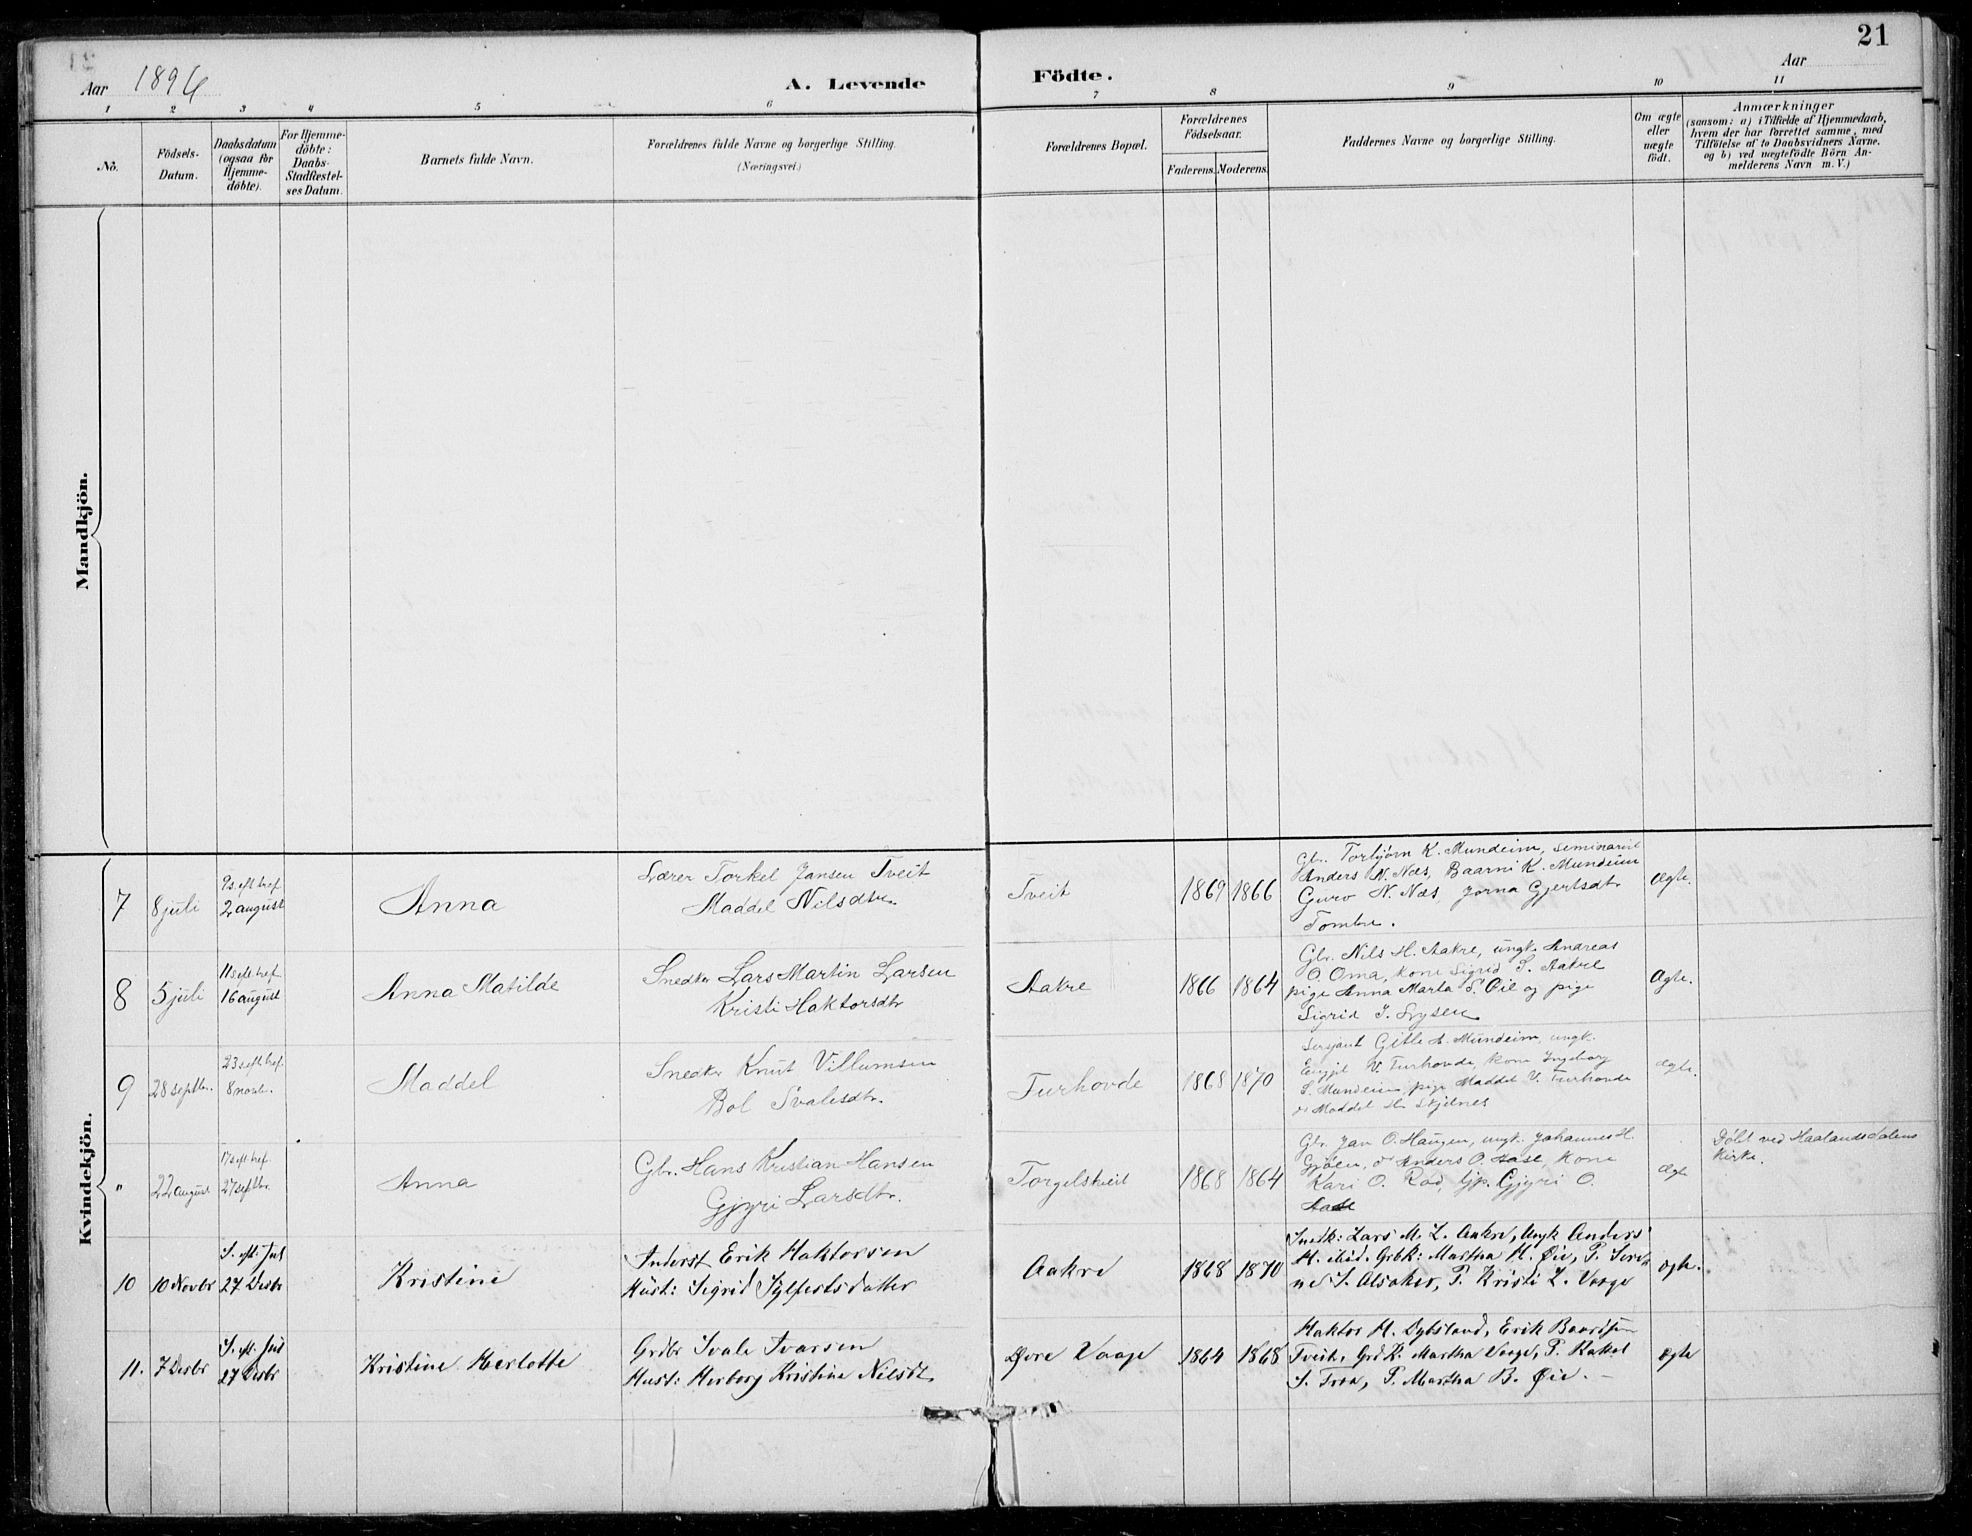 21
Aar 1896
A. Levende Födte.
Aar
1 2 3 4 5 6 7 8 9 10 11
No.
Födsels-
Datum.
Daabsdatum
(ogsaa for
Hjemme-
döbte).
For Hjemme-
döbte:
Daabs-
Stadfestel-
ses Datum.
Barnets fulde Navn.
Forældrenes fulde Navne og borgerlige Stilling.
(Næringsvei.)
Forældrenes Bopæl.
Forældrenes
Födselsaar.
Faderens. Moderens.
Faddernes Navne og borgerlige Stilling.
Om ægte
eller
uægte
födt.
Anmærkninger
(saasom: a) i Tilfælde af Hjemmedaab,
hvem der har forrettet samme, med
Tilföielse af to Daabsvidners Navne.
og b) ved uægtefödte Börn An-
melderens Navn m. V.)
Mandkjön.
Kvindekjön.
7 8 juli
9 s. eft tref
2 august
Anna
Lærer Torkel Jansen Tveit
Maddel Nilsdtr.
Tveit
1869 1866
Gbr. Torbjørn K. Mundeim, seminarist
Anders N. Næs, Baarni K. Mundeim
Guro N. Næs, Jorna Gjertsdtr.
Tombre.
ægte.
8 5 juli
11 s eft tref
16 august
Anna Matilde
Snedker Lars Martin Larsen
Kristi Haktorsdtr
Aakre
1866 1864
Gbr. Nils H. Aakre, ungk. Andreas
O. Oma, kone Sigrid S. Aakre
pige Anna Marta S. Øie og pige
Sigrid J. Lysen
Ægte.
9 28 septbr.
23 s eft tref.
8 novbr.
Maddel
Snedker Knut Villumsen
Bol Svalesdtr.
Furhovde
1868 1870
Sersjant Gitle A. Mundeim, ungk.
V. Furhovde, kone Ingeborg
S. Mundeim, pige Maddel V. Furhovde
Maddel H. Skjelnes
ægte.
" 22 august
17 s eft tref.
27 septbr.
Anna
Gbr. Hans Kristian Hansen
Gjyri Larsdtr.
Torgelstveit
1868 1864
Gbr. Jan O. Haugen, ungk. Johannes H.
Gjøen, Anders O. Aase, kone
Kari O. Rød, Gjyri O.
Aase
ægte
Døbt ved Haalandsdalens
Kirke.
10 10 Novbr
S. eft. Jul
27 Decbr
Kristine
Inderst Erik Haktorsen
Hust: Sigrid Sjlfestsdatter
Aakre
1868 1870
Snedk: Lars M. L. Aakre, Ungk Anders
H. ibid. Grbk: Martha H. Øie, P. Seri-
ne S. Alsaker, P. Kristi L. Vaage
ægte.
11. 7 Decbr
S. eft. Jul
27 Decbr
Kristine Herlotte
Grdbr Svale Ivarsen
Hust: Herborg Kristine Nilsdt.
Øvre Vaage
1864 1868
Haktor H. Dybsland, Erik Baardsen
Tveit, Grd.K. Martha Vaage, P. Rakel
S. Troa, P. Martha B. Øie. –
ægte